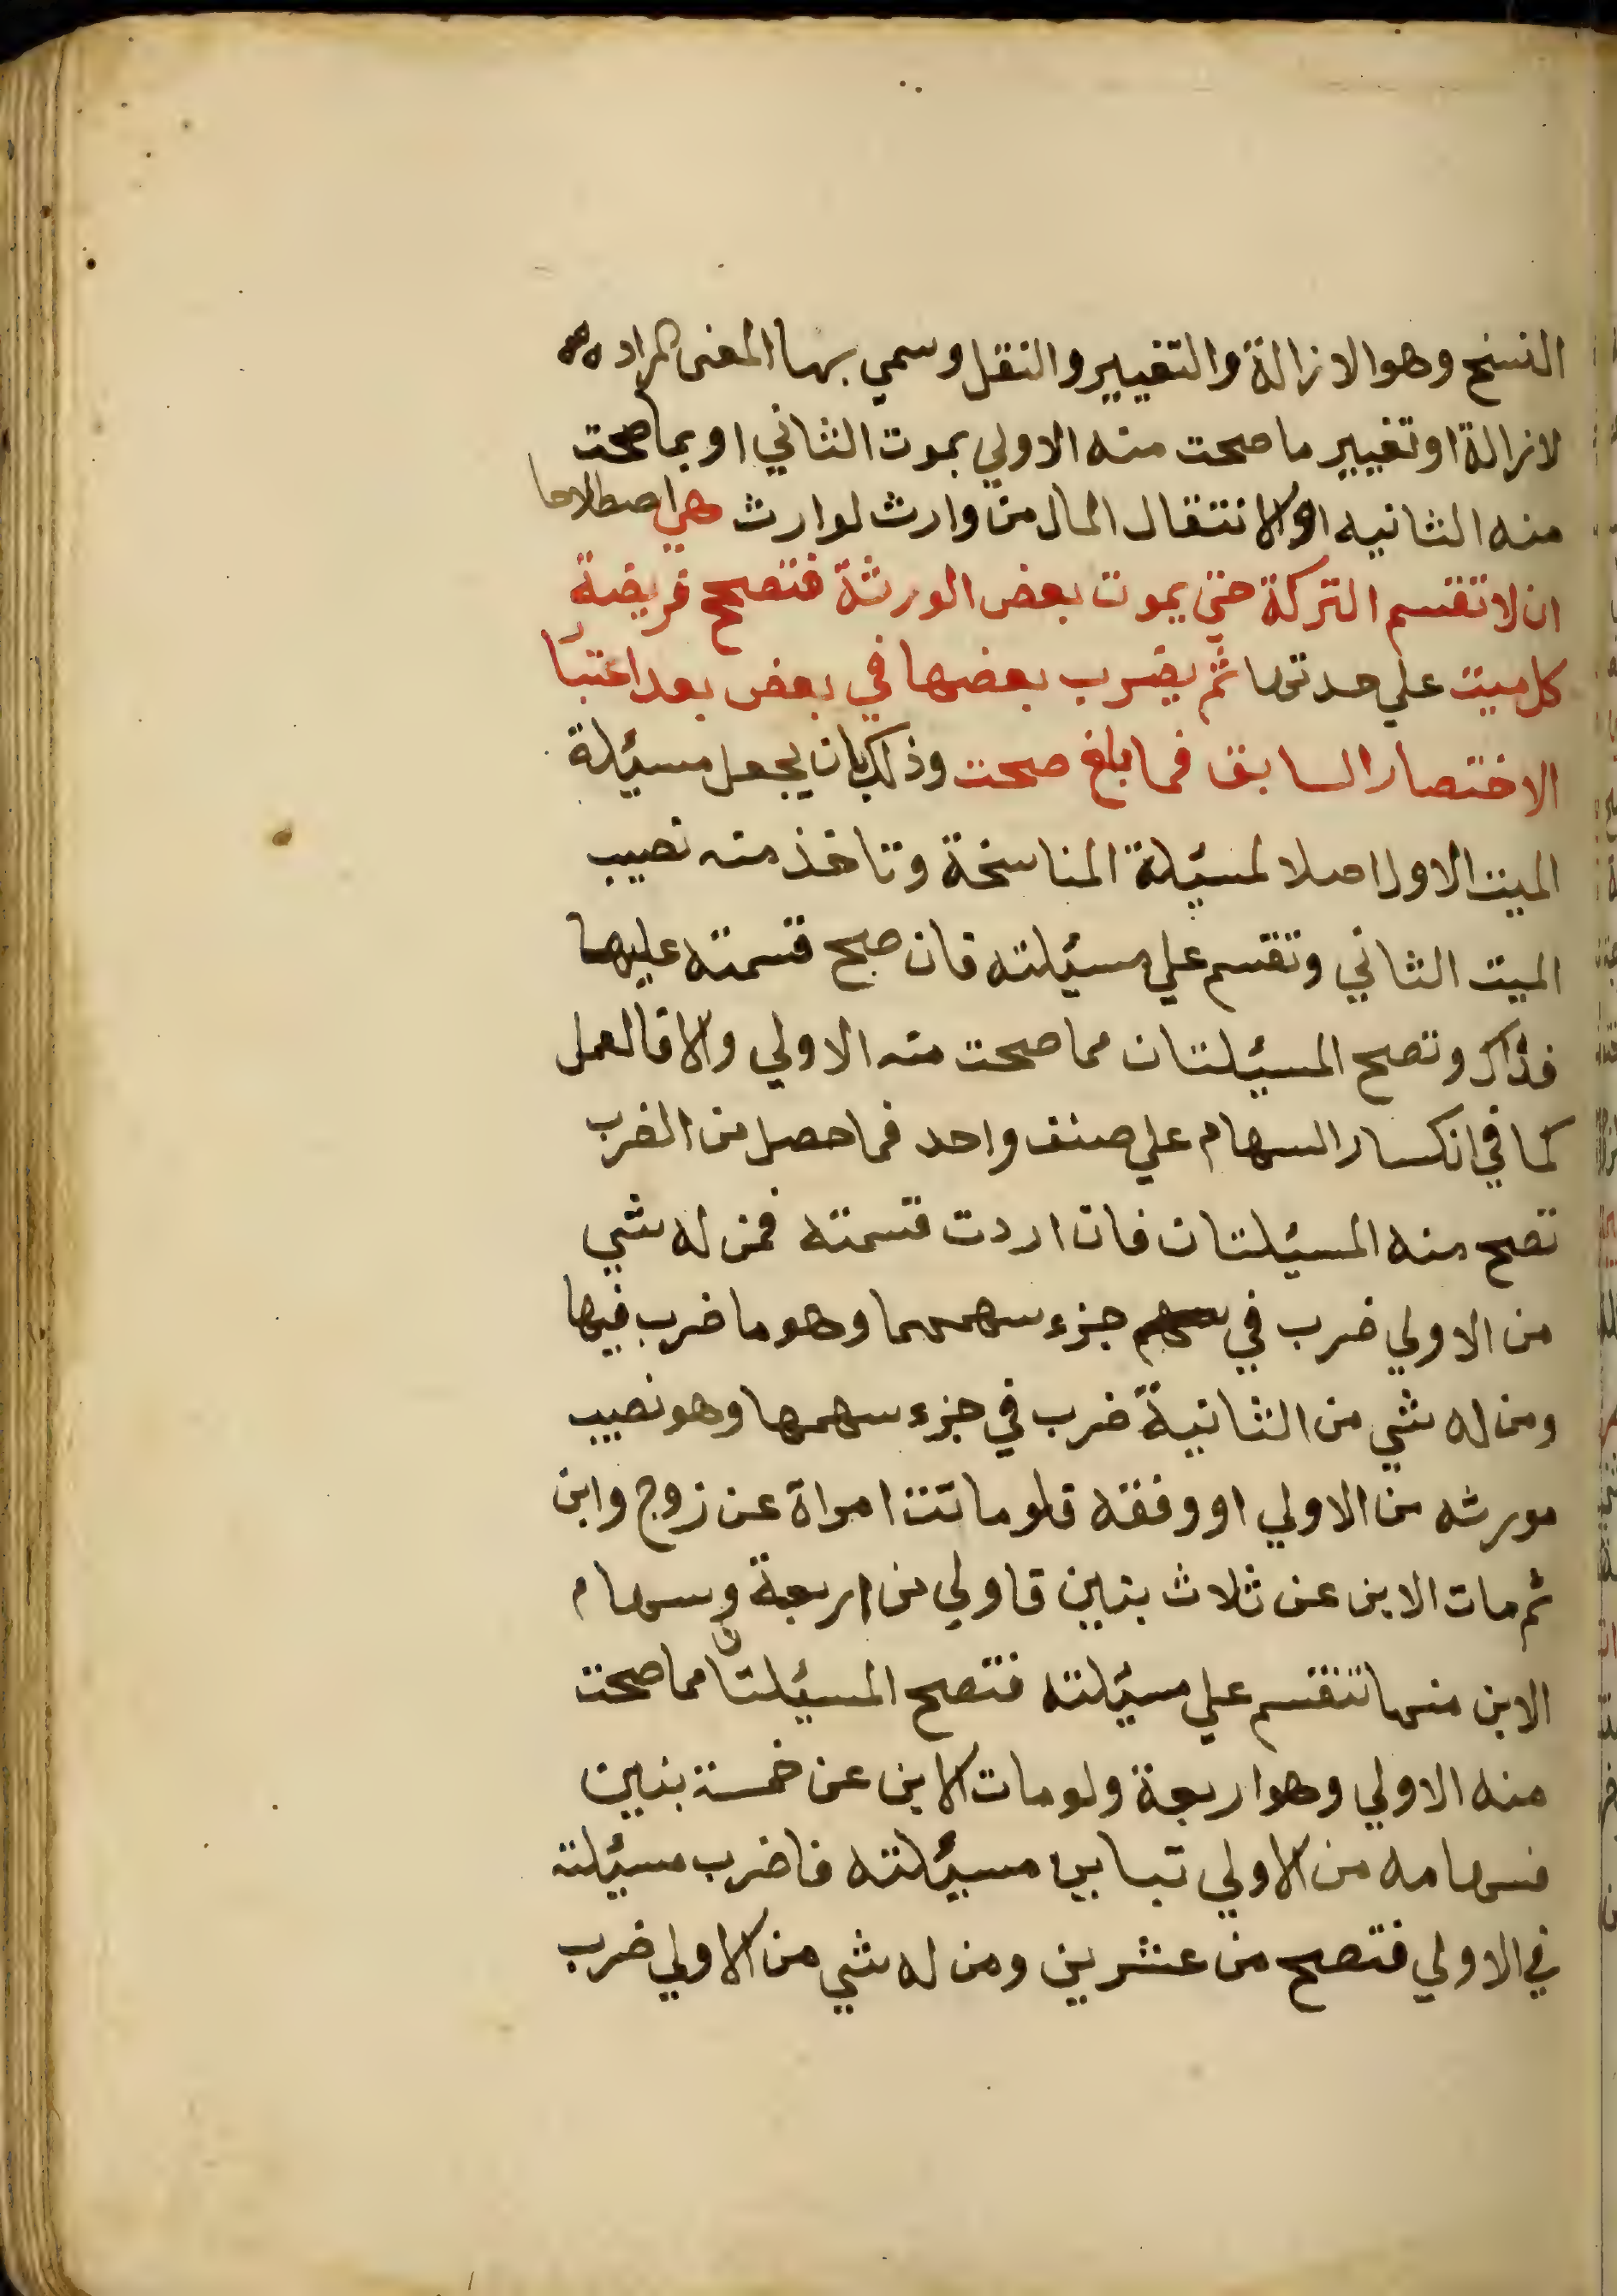 النسخ وهو الازالة والتغيير والنقل وسمي بها المعنى المراد
لازالة او تغيير ما صحت منه الاولي بموت الثاني او بما صحت
منه الثانيه او لانتقال المال من وارث لوارث هي اصطلاحا
ان لا تقتسم التركة حتي يموت بعض الورثة فتصحح فريضة
كل ميت علي حدتها ثم يضرب بعضها في بعض بعد اعتبار
الاختصار السابق فما بلغ صحت وذلك بان يجعل مسئلة
الميت الاول اصلا لمسئلة المناسخة وتاخذ منه نصيب
الميت الثاني وتقسم علي مسئلته فان صح قسمته عليها
فذاك وتصح المسئلتان مما صحت منه الاولي والا فالعمل
كما في انكسار السهام علي صنف واحد فما حصل من الضرب
تصح منه المسئلتان فان اردت قسمته فمن له شي
من الاولي ضرب في جزء سهمها وهو ما ضرب فيها
ومن له شي من الثانية ضرب في جزء سهمها وهو نصيب
مورثه من الاولي او وفقه فلو ماتت امراة عن زوج وابن
ثم مات الابن عن ثلاث بنين فاولي من اربعة وسهام
الابن منها تنقسم علي مسئلته فتصح المسئلتان مما صحت
منه الاولي وهو اربعة ولو مات الابن عن خمسة بنين
فسهامه من الاولي تباين مسئلته فاضرب مسئلته
في الاولي فتصح من عشرين ومن له شي من الاولي ضرب